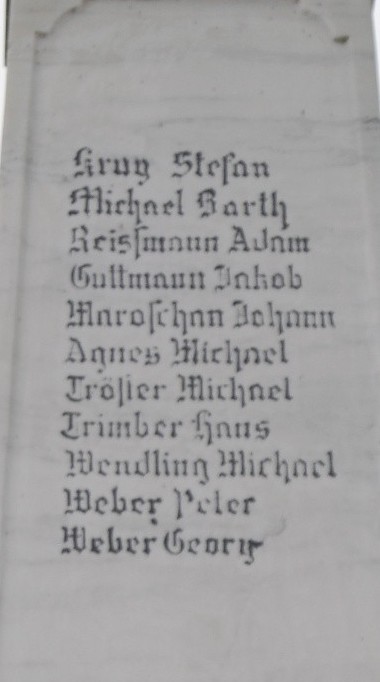 Krug Stefan
Michael Barth
Reissmann Adam
Guttmann Jakob
Maroschan Johann
Agnes Michael
Tröster Michael
Trimber Hans
Wendling Michael
Weber Peter
Weber Georg